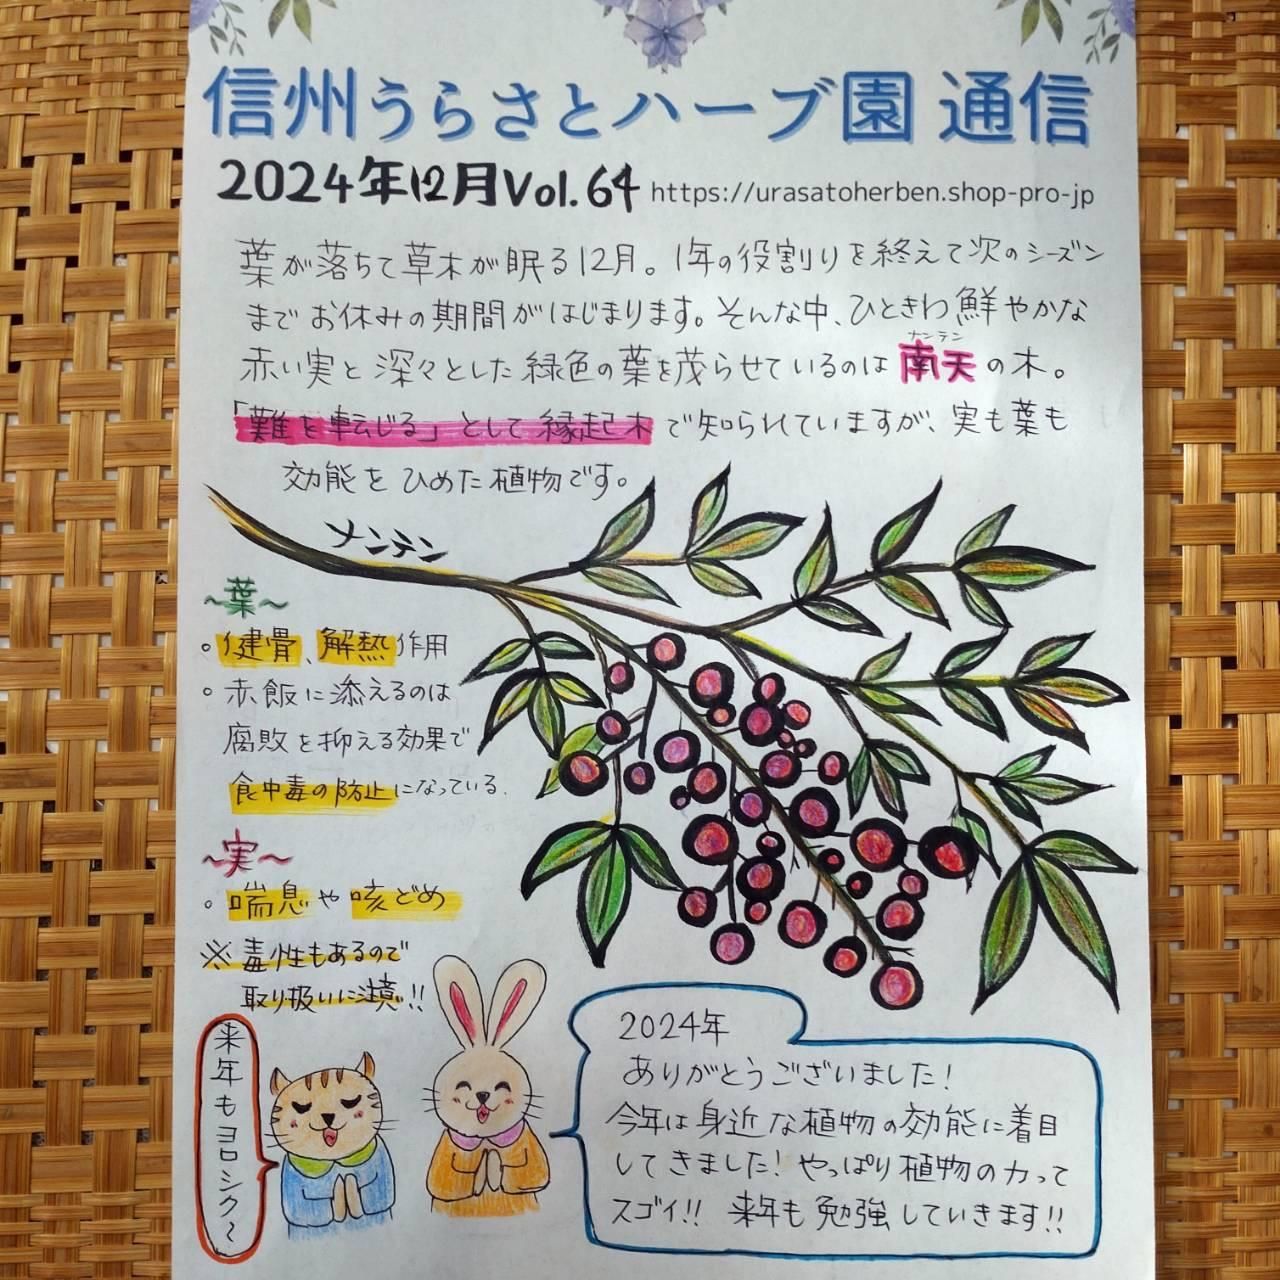 信州うらさとハーブ園 通信
2024年12月Vol.64 https://urasatoherben.shop-pro-jp
葉が落ちて草木が眠る12月。1年の役割りを終えて次のシーズン
までお休みの期間がはじまります。そんな中、ひときわ鮮やかな
ナンテン
赤い実と深々とした緑色の葉を茂らせているのは南天の木。
「難を転じる」として縁起木で知られていますが、実も葉も
効能をひめた植物です。
ナンテン
~葉~
・健骨、解熱作用
・赤飯に添えるのは
腐敗を抑える効果で
食中毒の防止になっている.
~実~
・喘息や咳どめ
※毒性もあるので
取り扱いに注意!!
来年もヨロシク~
2024年
ありがとうございました!
今年は身近な植物の効能に着目
してきました!やっぱり植物の力って
スゴイ!! 来年も勉強していきます!!